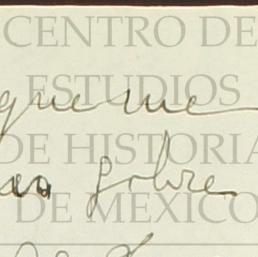 CENTRO DE
ESTUDIOS
que me
DE HISTORIA
sobre
DE MEXICO